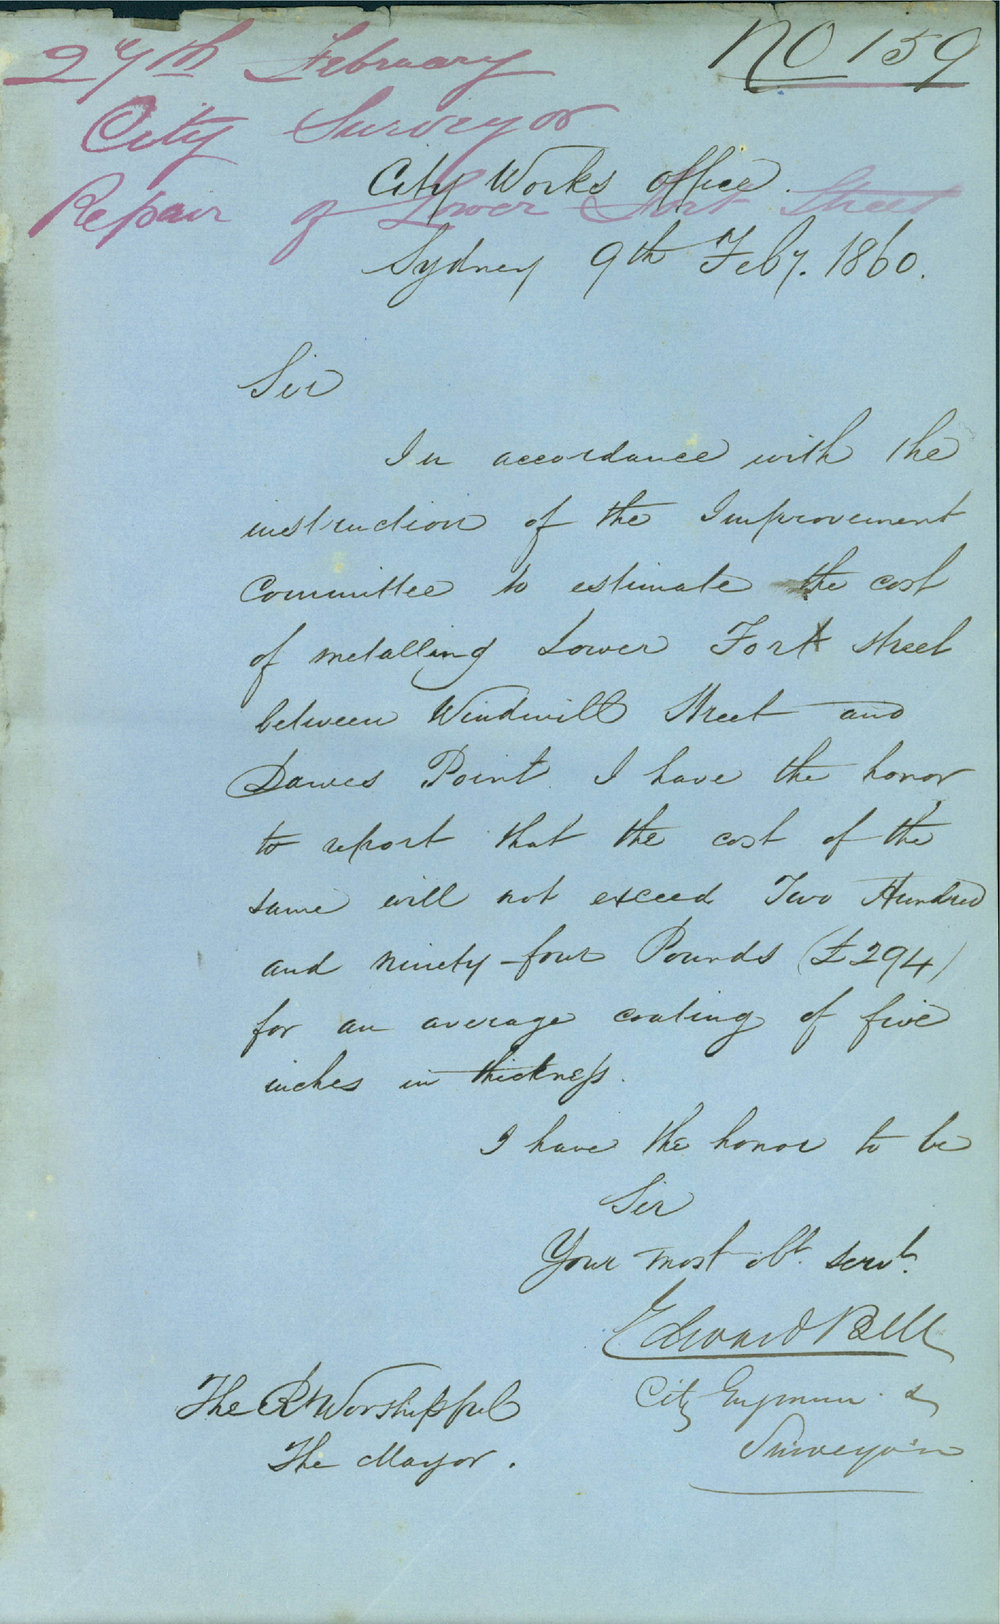 No 159
27th February
City Surveyor
Repair of Lower Fort Street
City Works Office.
Sydney 9th Feby. 1860.
Sir
In accordance with the
instruction of the Improvement
Committee to estimate the cost
of metalling Lower Fort Street
between Windmill Street and
Dawes Point I have the honor
to report that the cost of the
same will not exceed Two Hundred
and ninety-four Pounds (£294)
for an average coating of five
inches in thickness.
I have the honor to be
Sir
Your most obt. servt.
Edward Bell
City Engineer &
Surveyor
The Rt Worshipful
The Mayor.